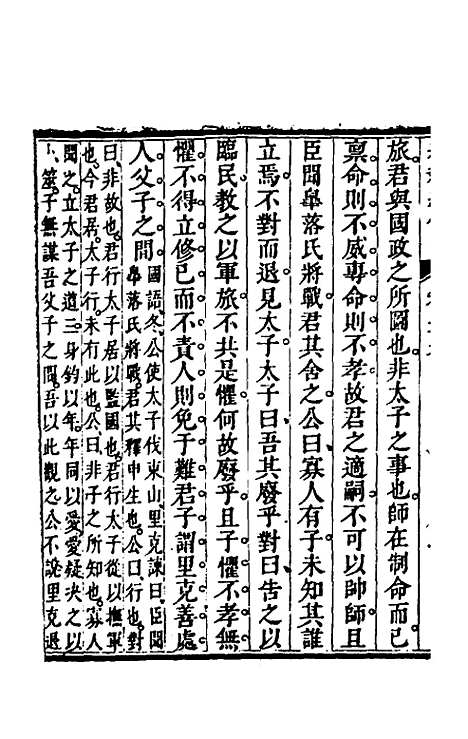 旅君與國政之所圖也非太子之事也師在制命而已
稟命則不威專命則不孝故君之適嗣不可以帥師且
臣聞皋落氏將戰君其舍之公曰寡人有子未知其誰
立焉不對而退見太子太子曰吾其廢乎對曰告之以
臨民教之以軍旅不共是懼何故廢乎且子懼不孝無
懼不得立修已而不責人則免于難君子謂里克善處
人父子之間
國語冬公使太子伐東山里克諫曰臣聞
皋落氏將戰君其釋申生也公曰行也對
曰非故也君行太子居以監國也君行太子從以撫軍
也今君居太子行未有此也公曰非子之所知也寡人
聞之立太子之道三身鈞以年年同以愛愛疑決之以
卜筮子無謀吾父子之間吾以此觀之公不說里克退